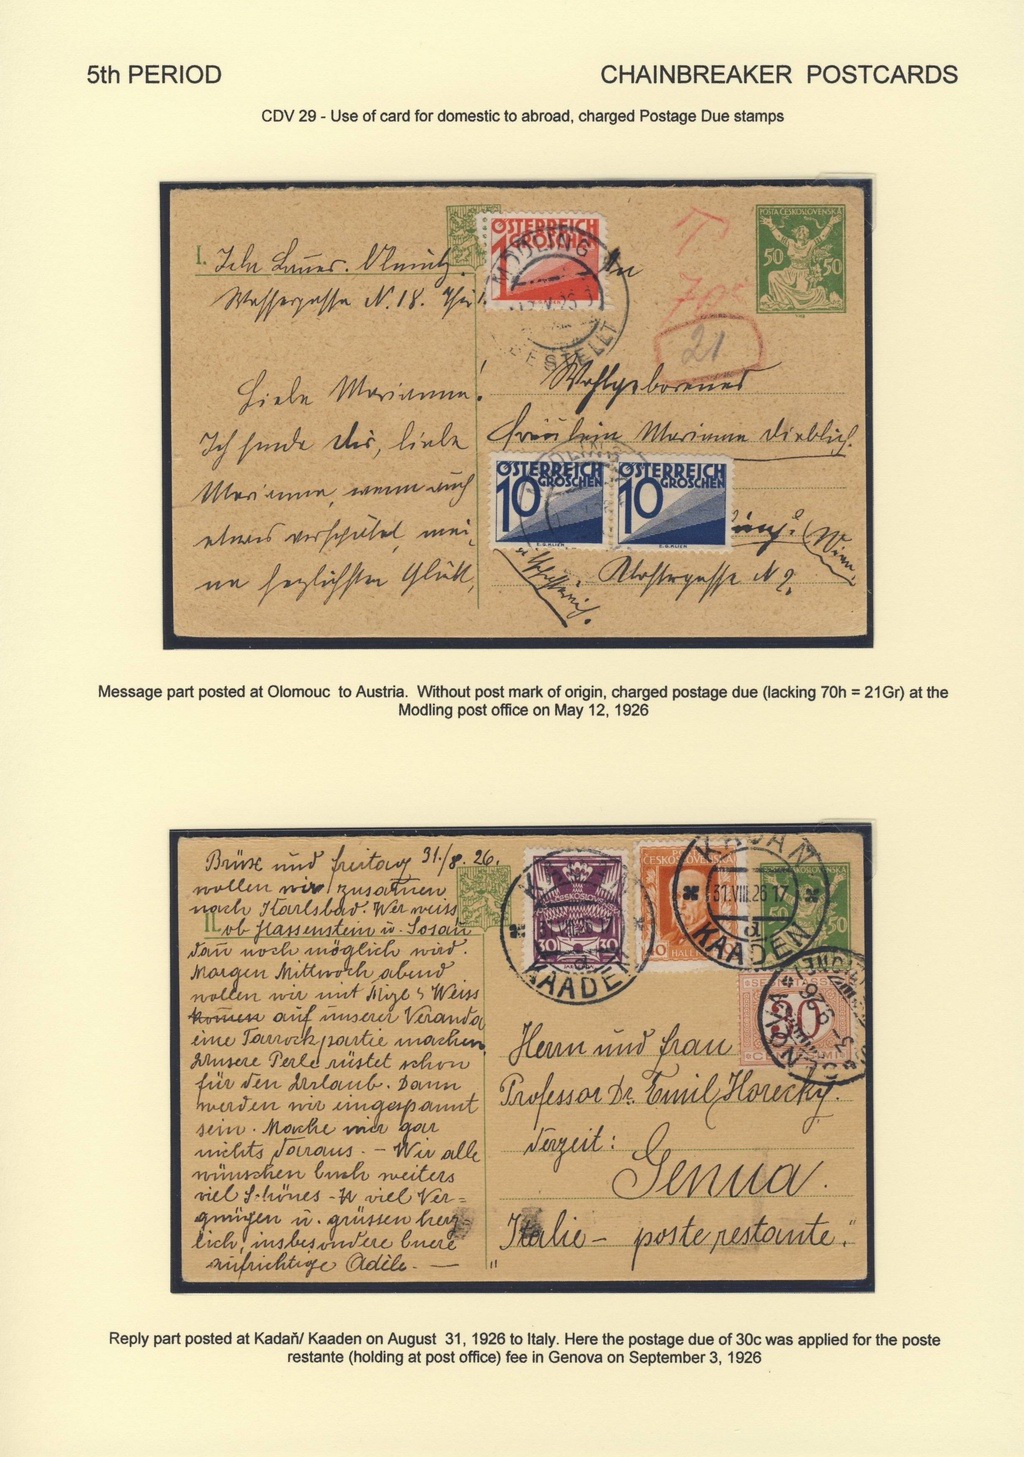 5th PERIOD
CHAINBREAKER POSTCARDS
CDV 29 - Use of card for domestic to abroad, charged Postage Due stamps
I.
ÖSTERREICH
1 GROSCHEN
MÖDLING
BESTELLT
An
T
70
21
POSTA ČESKOSLOVENSKÁ
50 50
Wassergasse N. 18.
Liebe Marianne!
Wohlgeborenes
Ich sende dir, liebe
Fräulein Marianne
Marianne, wenn auch
etwas verspätet, mei-
ne herzlichsten Glück-
ÖSTERREICH
10 GROSCHEN
ÖSTERREICH
10 GROSCHEN
MÖDLING
(Wien
Klostergasse N 2.
Message part posted at Olomouc to Austria. Without post mark of origin, charged postage due (lacking 70h = 21Gr) at the
Modling post office on May 12, 1926
Brüx und freitag 31./8. 26.
wollen wir zusammen
nach Karlsbad. Wer weiss
II. ob Hassenstein u.
dann noch möglich wird.
Morgen Mittwoch abend
wollen wir mit Mizl & Weiss
kommen auf unserer Veranda
eine Tarockpartie machen.
Unsere Perle rüstet schon
für den Urlaub. Dann
werden wir eingespannt
sein. Mache mir gar
nichts daraus. – Wir alle
wünschen Euch weiters
viel Schönes - u viel Ver=
gnügen u. grüssen herz
lich, insbesondere Euere
aufrichtige Adèle. —
30 30
KADAŇ
31.VIII.26 17
a
KAADEN
ČESKOSLOVENSKÁ
KADAŇ
31.VIII.26 17
a
KAADEN
50
SEGNATASSE
30
CENTESIMI
GENOVA
3 - 9. 26
Herrn und Frau
Professor Dr. Emil Horecky.
derzeit:
Genua.
Italie – poste restante."
Reply part posted at Kadaň/ Kaaden on August 31, 1926 to Italy. Here the postage due of 30c was applied for the poste
restante (holding at post office) fee in Genova on September 3, 1926